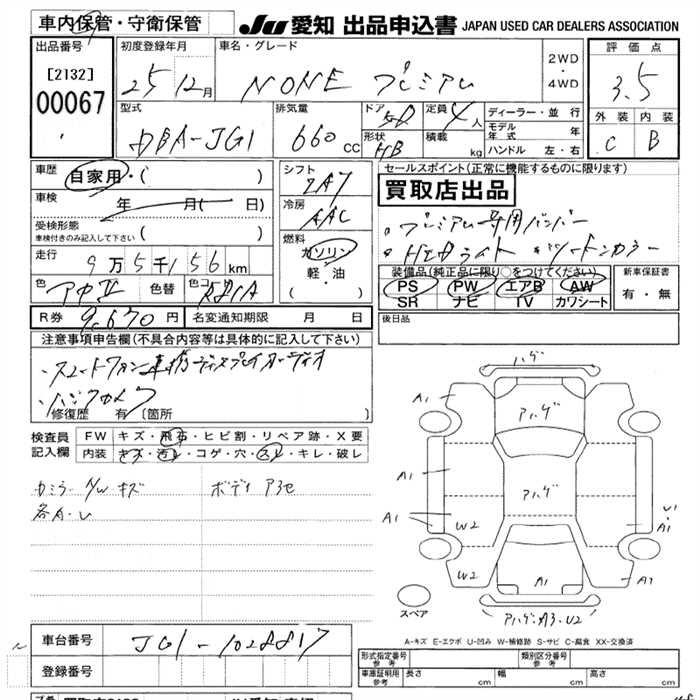 車内保管・守衛保管
JU 愛知 出品申込書 JAPAN USED CAR DEALERS ASSOCIATION
出品番号
[2132]
00067
初度登録年月
25 12月
車名・グレード
NONE プレミアム
2WD
・
4WD
評価点
3.5
外装 内装
C B
型式
DBA-JG1
排気量
660 cc
ドア 5D
形状 HB
定員 4人
積載 kg
ディーラー・並行
モデル年式 年
ハンドル 左・右
車歴
自家用・( )
車検
年 月( 日)
受検形態
車検付きのみ記入して下さい
( )
走行
9万5千156km
色
色替
色コ
シフト
7A7
冷房
AAC
燃料
ガソリン
軽・油
( )
セールスポイント(正常に機能するものに限ります)
買取店出品
・プレミアム専用バンパー
・HIDライト ・ツートンカラー
装備品(純正品に限り○をつけてください)
PS PW エアB AW
SR ナビ TV カワシート
新車保証書
有・無
R券 9,670円
名変通知期限 月 日
後日品
注意事項申告欄(不具合内容等は具体的に記入して下さい)
・スマートフォン連携ディスプレイオーディオ
・バックカメラ
修復歴 有 [箇所 ]
検査員
記入欄
FW キズ・飛石・ヒビ割・リペア跡・X要
内装 キズ・汚レ・コゲ・穴・スレ・キレ・破レ
カミラー N/W キズ
ボディ アセ
各A・U
ハゲ
A1
アハゲ
A1
A1
アハゲ
U1
A1
W2
W2
A1
スペア
アハゲ・A3・U2
A-キズ E-エクボ U-凹み W-補修跡 S-サビ C-腐食 XX-交換済
車台番号
JG1-1028817
登録番号
形式指定番号
参考
類別区分番号
参考
車庫証明用
参考
長さ cm
幅 cm
高さ cm